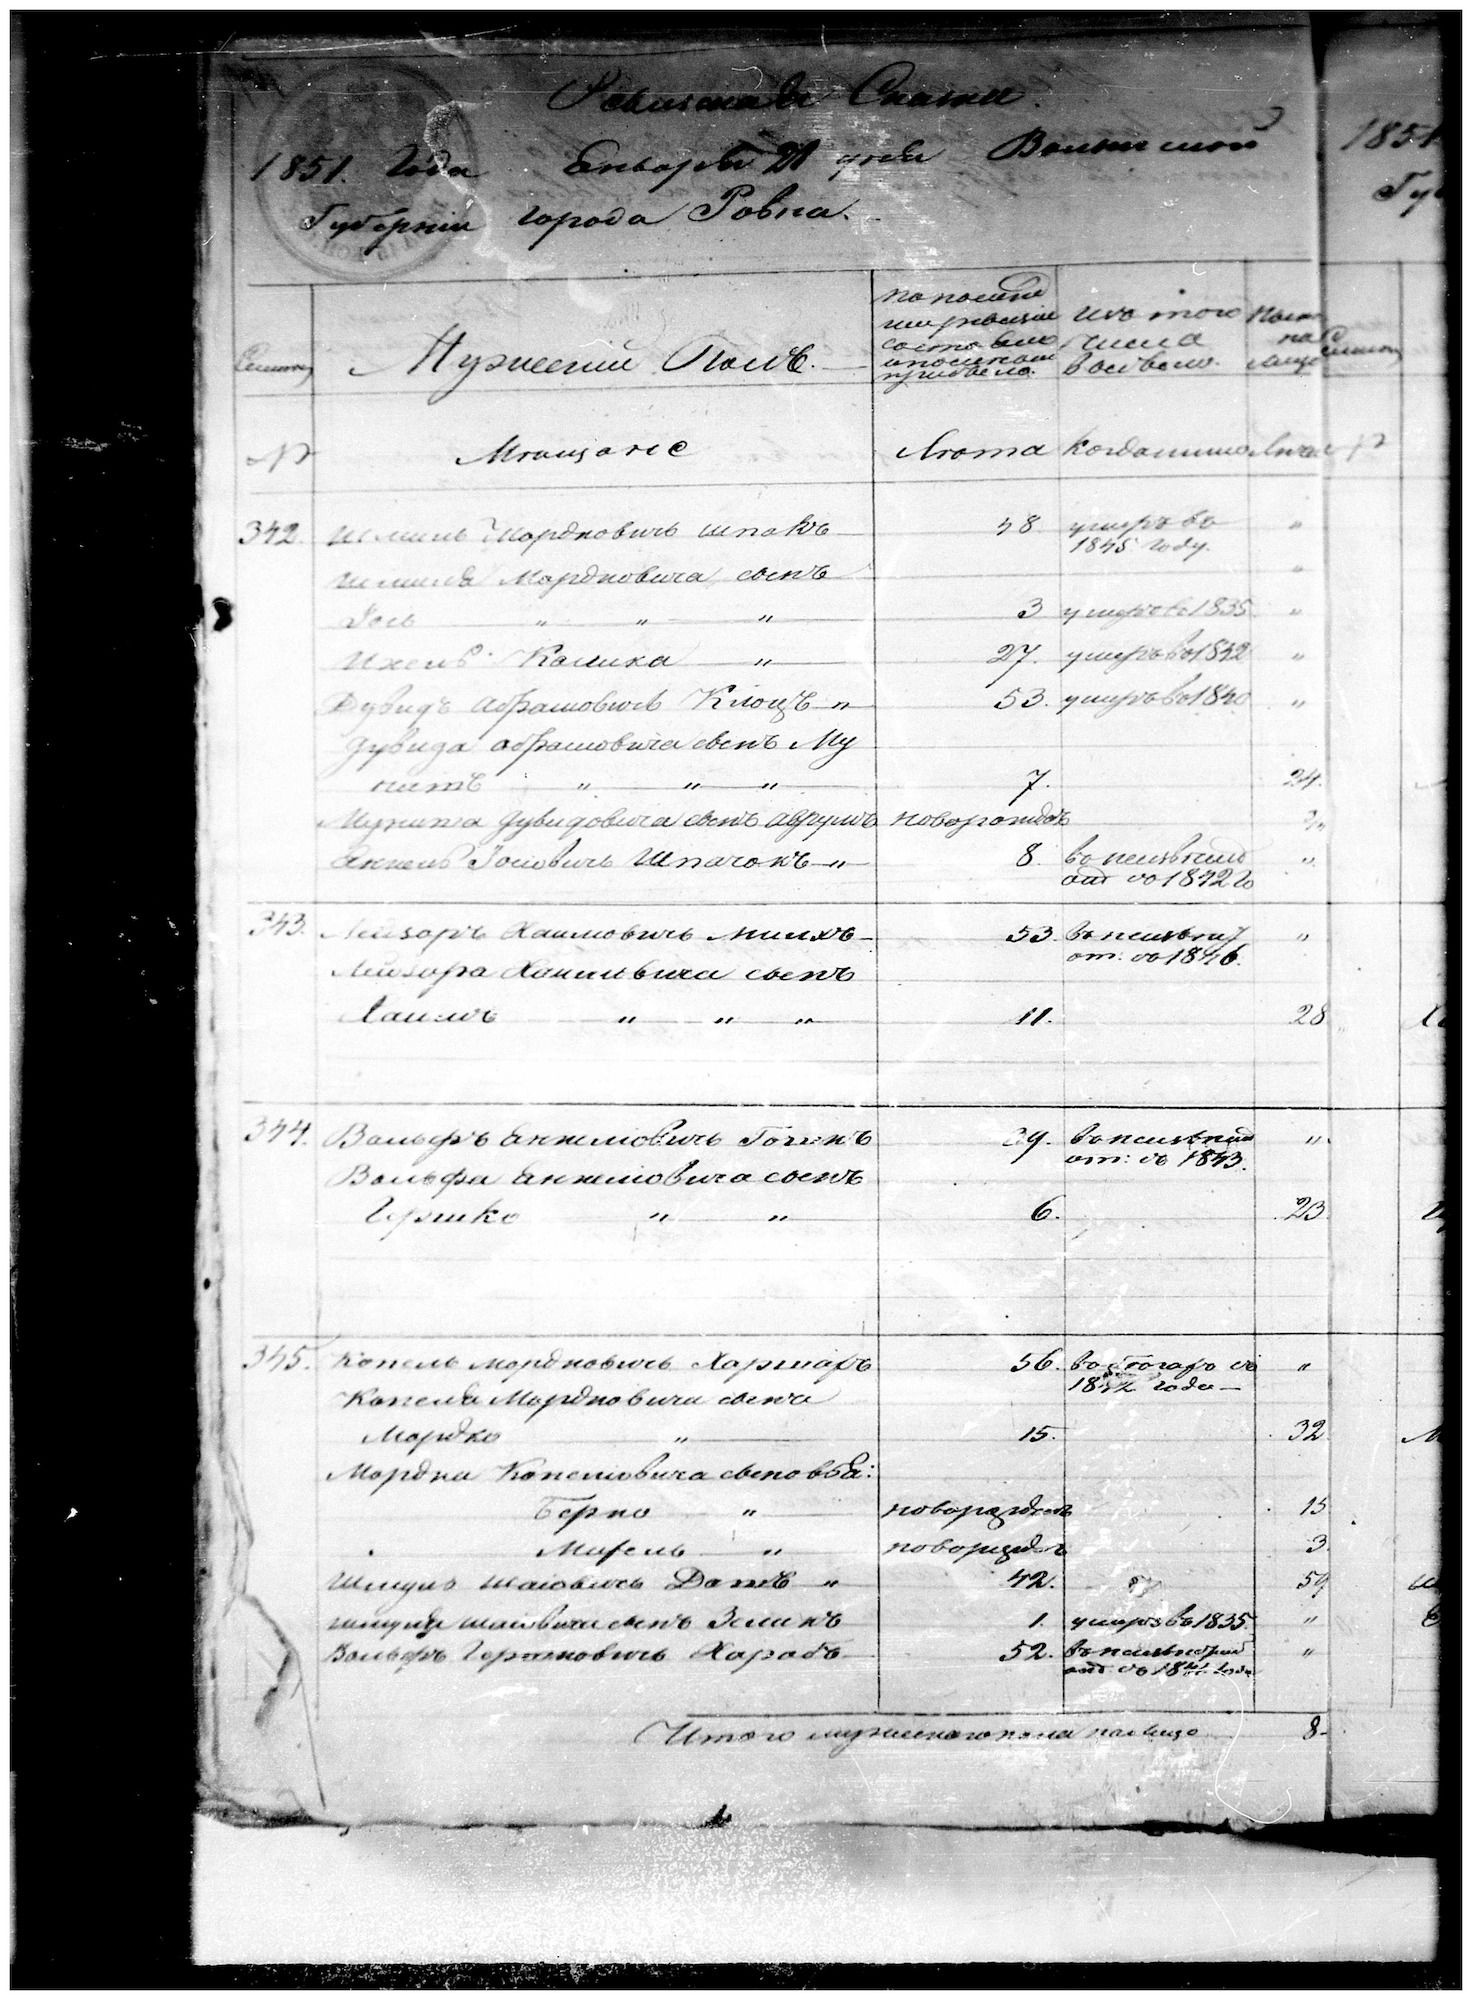 Ревизская Сказка
1851. Года Генваря 21 дня Волынской
Губернии города Ровна.
Мужеский Полъ.
по послед
ней ревизии
состояло
и после того
прибыло.
изъ того
числа
выбыло.
ныне
на
лицо
Семьи
№
Мещане
Лета
когда именно
Лета
342.
Шмиль Мордковичъ Шпакъ
48
умеръ въ
1845 году.
"
Шмиля Мордковича сынъ
"
Іось " " "
3
умеръ въ 1835
"
Ихель Калика "
27.
умеръ въ 1842
"
Дувидъ Абрамовичъ Клоцъ "
53.
умеръ въ 1840
"
Дувида Абрамовича сынъ Му
нитъ " " "
7.
24.
Мунита Дувидовича сынъ Аврумъ
новорожден
Янкель Іосіовичъ Шпачокъ "
8.
въ неизвестной
отл. съ 1842 г
"
343.
Лейзоръ Хаимовичъ Милхъ
53.
въ неизвест
от: съ 1846.
"
Лейзора Хаимовича сынъ
Хаимъ " " "
11.
28
344.
Вольфъ Янкелiовичъ
29.
въ неизвестной
от: съ 1843.
"
Вольфа Янкелiовича сынъ
Гершко " "
6.
23
345.
Копель Мордковичъ
56.
въ богад съ
1842 года
"
Копеля Мордковича сынъ
Мордко "
15.
32
Мордка Копелiовича сыновья:
Берко "
новорожден
15
Мифель "
новорожден
3
Шмуль Шаiовичъ "
42.
59
Шмуля Шаiовича сынъ Зеликъ
1.
умеръ въ 1835.
"
Вольфъ Гершковичъ Харабъ
52.
въ неизвестной
отл съ 1841 года
"
Итого мужескаго пола налицо 8
1851
Губ